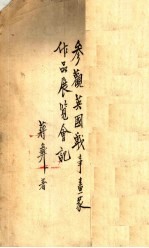 參觀英國戰事畫家
作品展覽會記
蔣彝著